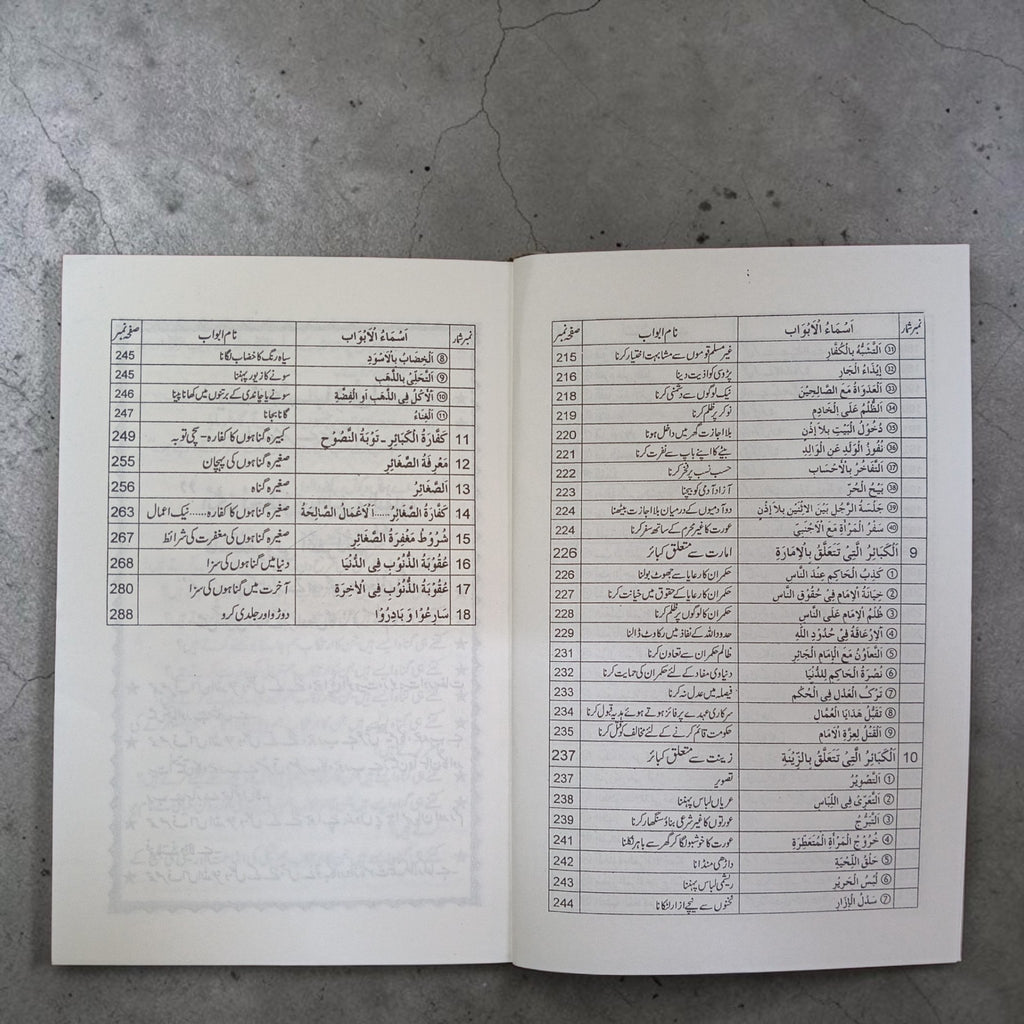 نمبر شمار اَسْمَاءُ الْاَبْوَاب نام ابواب صفحہ نمبر
㉛ اَلتَّشَبُّهُ بِالْكُفَّارِ غیر مسلم قوموں سے مشابہت اختیار کرنا 215
㉜ اِيْذَاءُ الْجَارِ پڑوسی کو اذیت دینا 216
㉝ اَلْعَدَاوَةُ مَعَ الصَّالِحِيْنَ نیک لوگوں سے دشمنی کرنا 218
㉞ اَلظُّلْمُ عَلَى الْخَادِمِ نوکر پر ظلم کرنا 219
㉟ دُخُوْلُ الْبَيْتِ بِلاَ اِذْنٍ بلا اجازت گھر میں داخل ہونا 220
㊱ نُفُوْرُ الْوَلَدِ عَنِ الْوَالِدِ بیٹے کا اپنے باپ سے نفرت کرنا 221
㊲ اَلتَّفَاخُرُ بِالْاَحْسَابِ حسب نسب پر فخر کرنا 222
㊳ بَيْعُ الْحُرِّ آزاد آدمی کو بیچنا 223
㊴ جَلْسَةُ الرَّجُلِ بَيْنَ الاثْنَيْنِ بِلاَ اِذْنٍ دو آدمیوں کے درمیان بلا اجازت بیٹھنا 224
㊵ سَفَرُ الْمَرْأَةِ مَعَ الْاَجْنَبِيِّ عورت کا غیر محرم کے ساتھ سفر کرنا 224
9 اَلْكَبَائِرُ الَّتِيْ تَتَعَلَّقُ بِالْاِمَارَةِ امارت سے متعلق کبائر 226
① كَذِبُ الْحَاكِمِ عِنْدَ النَّاسِ حکمران کا رعایا سے جھوٹ بولنا 226
② خِيَانَةُ الْاِمَامِ فِيْ حُقُوْقِ النَّاسِ حکمران کا رعایا کے حقوق میں خیانت کرنا 227
③ ظُلْمُ الْاِمَامِ عَلَى النَّاسِ حکمران کا لوگوں پر ظلم کرنا 228
④ اَلْاِعَاقَةُ فِيْ حُدُوْدِ اللّٰهِ حدود اللہ کے نفاذ میں رکاوٹ ڈالنا 229
⑤ اَلتَّعَاوُنُ مَعَ الْاِمَامِ الْجَائِرِ ظالم حکمران سے تعاون کرنا 231
⑥ نُصْرَةُ الْحَاكِمِ لِلدُّنْيَا دنیاوی مفاد کے لئے حکمران کی حمایت کرنا 232
⑦ تَرْكُ الْعَدْلِ فِي الْحُكْمِ فیصلہ میں عدل نہ کرنا 233
⑧ تَقَبُّلُ هَدَايَا الْعُمَّالِ سرکاری عہدے پر فائز ہوتے ہوئے ہدیہ قبول کرنا 234
⑨ اَلْقَتْلُ لِعِزَّةِ الْاِمَامِ حکومت قائم کرنے کے لئے مخالف کو قتل کرنا 235
10 اَلْكَبَائِرُ الَّتِيْ تَتَعَلَّقُ بِالزِّيْنَةِ زینت سے متعلق کبائر 237
① اَلتَّصْوِيْرُ تصویر 237
② اَلتَّعَرِّيْ فِي اللِّبَاسِ عریاں لباس پہننا 238
③ اَلتَّبَرُّجُ عورتوں کا غیر شرعی بناؤ سنگھار کرنا 239
④ خُرُوْجُ الْمَرْأَةِ الْمُتَعَطِّرَةِ عورت کا خوشبو لگا کر گھر سے باہر نکلنا 241
⑤ حَلْقُ اللِّحْيَةِ داڑھی منڈانا 242
⑥ لُبْسُ الْحَرِيْرِ ریشمی لباس پہننا 243
⑦ سَدْلُ الْاِزَارِ ٹخنوں سے نیچے ازار لٹکانا 244
نمبر شمار اَسْمَاءُ الْاَبْوَاب نام ابواب صفحہ نمبر
⑧ اَلْخِضَابُ بِالْاَسْوَدِ سیاہ رنگ کا خضاب لگانا 245
⑨ اَلتَّحَلِّيْ بِالذَّهَبِ سونے کا زیور پہننا 245
⑩ اَلْاَكْلُ فِى الذَّهَبِ اَوِ الْفِضَّةِ سونے یا چاندی کے برتنوں میں کھانا پینا 246
⑪ اَلْغِنَاءُ گانا بجانا 247
11 كَفَّارَةُ الْكَبَائِرِ ـ تَوْبَةُ النَّصُوْحِ کبیرہ گناہوں کا کفارہ – سچی توبہ 249
12 مَعْرِفَةُ الصَّغَائِرِ صغیرہ گناہوں کی پہچان 255
13 اَلصَّغَائِرُ صغیرہ گناہ 256
14 كَفَّارَةُ الصَّغَائِرِ......اَلْاَعْمَالُ الصَّالِحَةُ صغیرہ گناہوں کا کفارہ......نیک اعمال 263
15 شُرُوْطُ مَغْفِرَةِ الصَّغَائِرِ صغیرہ گناہوں کی مغفرت کی شرائط 267
16 عُقُوْبَةُ الذُّنُوْبِ فِى الدُّنْيَا دنیا میں گناہوں کی سزا 268
17 عُقُوْبَةُ الذُّنُوْبِ فِى الْاٰخِرَةِ آخرت میں گناہوں کی سزا 280
18 سَارِعُوْا وَ بَادِرُوْا دوڑو اور جلدی کرو 288